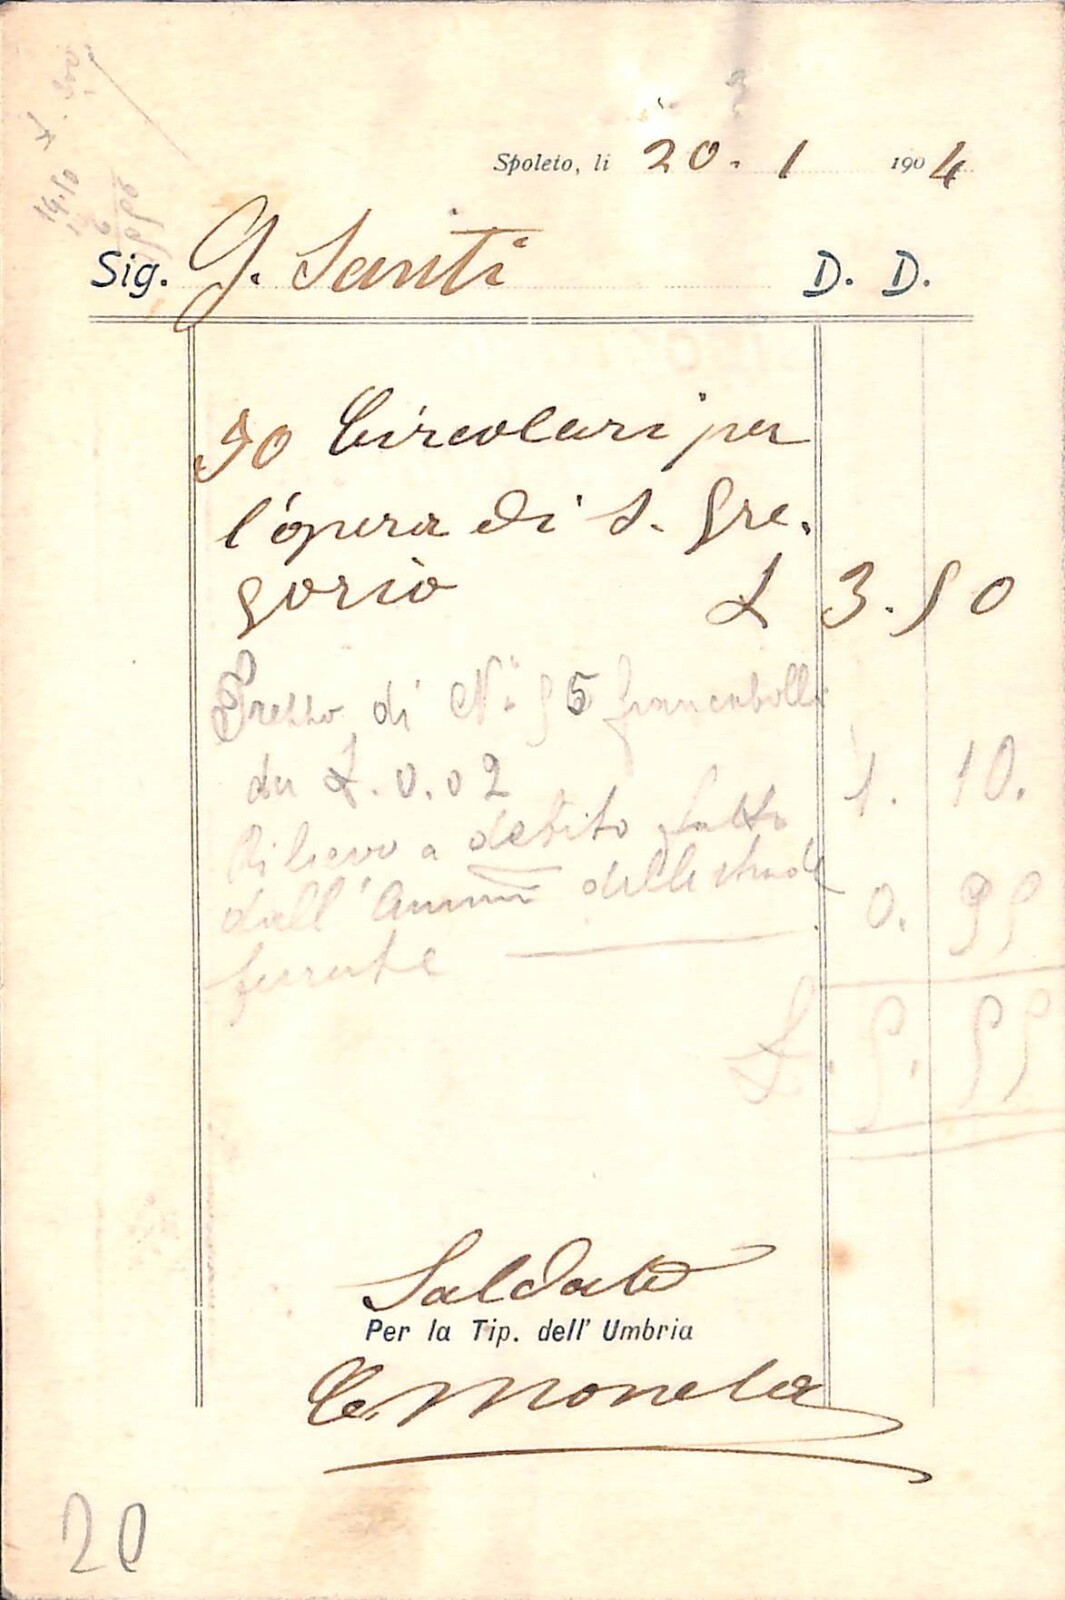 Spoleto, li 20. 1 1904
Sig. G. Santi D. D.
50 Circolari per
l'opera di S. Gre.
gorio £ 3.50
Prezzo di N.° 55 francobolli
da £. 0.02 1. 10.
Rilievo a debito fatto
dall' Ammne delle strade 0. 95
ferrate
£. 5. 55
Saldato
Per la Tip. dell' Umbria
20